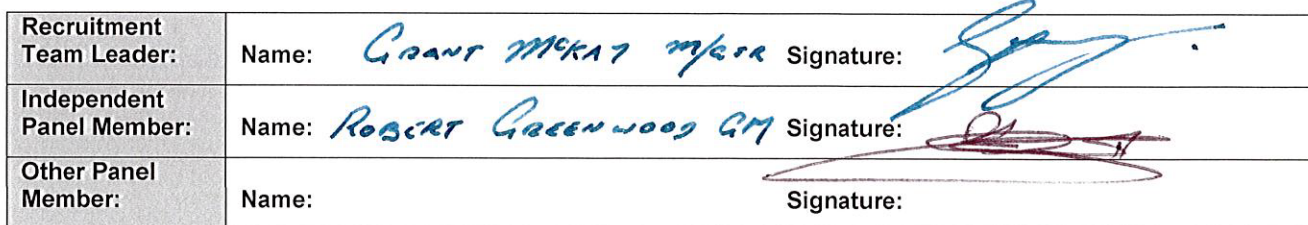 Recruitment
Team Leader: Name: GRANT McKAY M/GER Signature:
Independent
Panel Member: Name: ROBERT GREENWOOD GM Signature:
Other Panel
Member: Name: Signature: